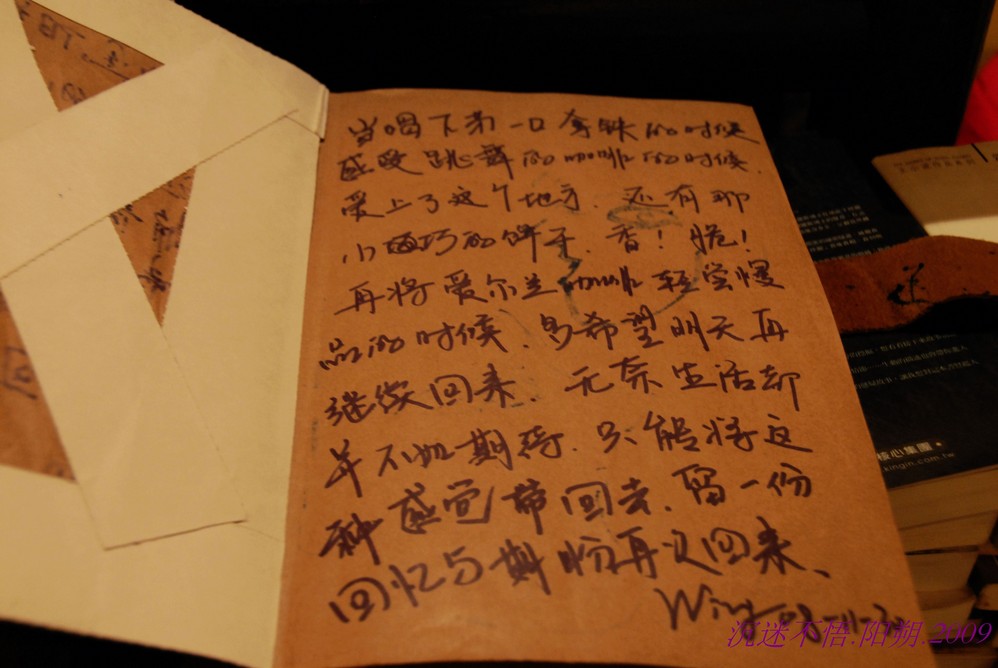 当喝下第一口拿铁的时候
感受跳舞的 的时候.
爱上了这个地方. 还有那
小 巧的饼干. 香! 脆!
再将爱尔兰 轻尝慢
品的时候、多希望明天再
继续回来. 无奈生活却
并不如期待. 只能将这
种感觉带回去. 留一份
回忆与期盼再次回来、
Wing
沉迷不悟.阳朔.2009
核心集團
kingin.com.tw